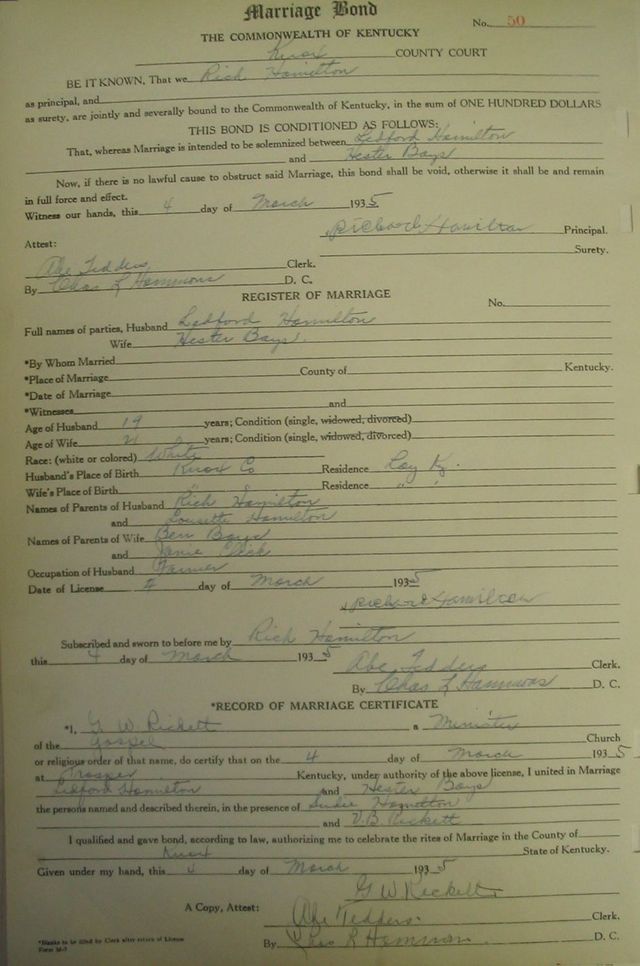 Marriage Bond
No. 50
THE COMMONWEALTH OF KENTUCKY
Knox COUNTY COURT
BE IT KNOWN, That we Rich Hamilton
as principal, and
as surety, are jointly and severally bound to the Commonwealth of Kentucky, in the sum of ONE HUNDRED DOLLARS
THIS BOND IS CONDITIONED AS FOLLOWS:
That, whereas Marriage is intended to be solemnized between Ledford Hamilton
and Hester Bays
Now, if there is no lawful cause to obstruct said Marriage, this bond shall be void, otherwise it shall be and remain
in full force and effect.
Witness our hands, this 4 day of March 1935
Richard Hamilton Principal.
Attest: Surety.
Abe Tedders Clerk.
By Chas L Hammons D. C.
REGISTER OF MARRIAGE
No.
Full names of parties, Husband Ledford Hamilton
Wife Hester Bays.
*By Whom Married
*Place of Marriage County of Kentucky.
*Date of Marriage
*Witnesses and
Age of Husband 19 years; Condition (single, widowed, divorced)
Age of Wife 21 years; Condition (single, widowed, divorced)
Race: (white or colored) White
Husband's Place of Birth Knox Co Residence Ky.
Wife's Place of Birth " " Residence " "
Names of Parents of Husband Rich Hamilton
and Hamilton
Names of Parents of Wife Ben Bays
and
Occupation of Husband Farmer
Date of License 4 day of March 1935
Richard Hamilton
Subscribed and sworn to before me by Rich Hamilton
this 4 day of March 1935
Abe Tedders Clerk.
By Chas L Hammons D. C.
*RECORD OF MARRIAGE CERTIFICATE
*I, G. W. Rickett a Minister
of the Gospel Church
or religious order of that name, do certify that on the 4 day of March 1935
at Prosper Kentucky, under authority of the above license, I united in Marriage
Ledford Hamilton and Hester Bays
the persons named and described therein, in the presence of Hamilton
and V. B. Rickett
I qualified and gave bond, according to law, authorizing me to celebrate the rites of Marriage in the County of
Knox State of Kentucky.
Given under my hand, this 4 day of March 1935
G W Rickett
A Copy, Attest: Abe Tedders. Clerk.
By Chas L Hammons D. C.
*Blanks to be filled by Clerk after return of License